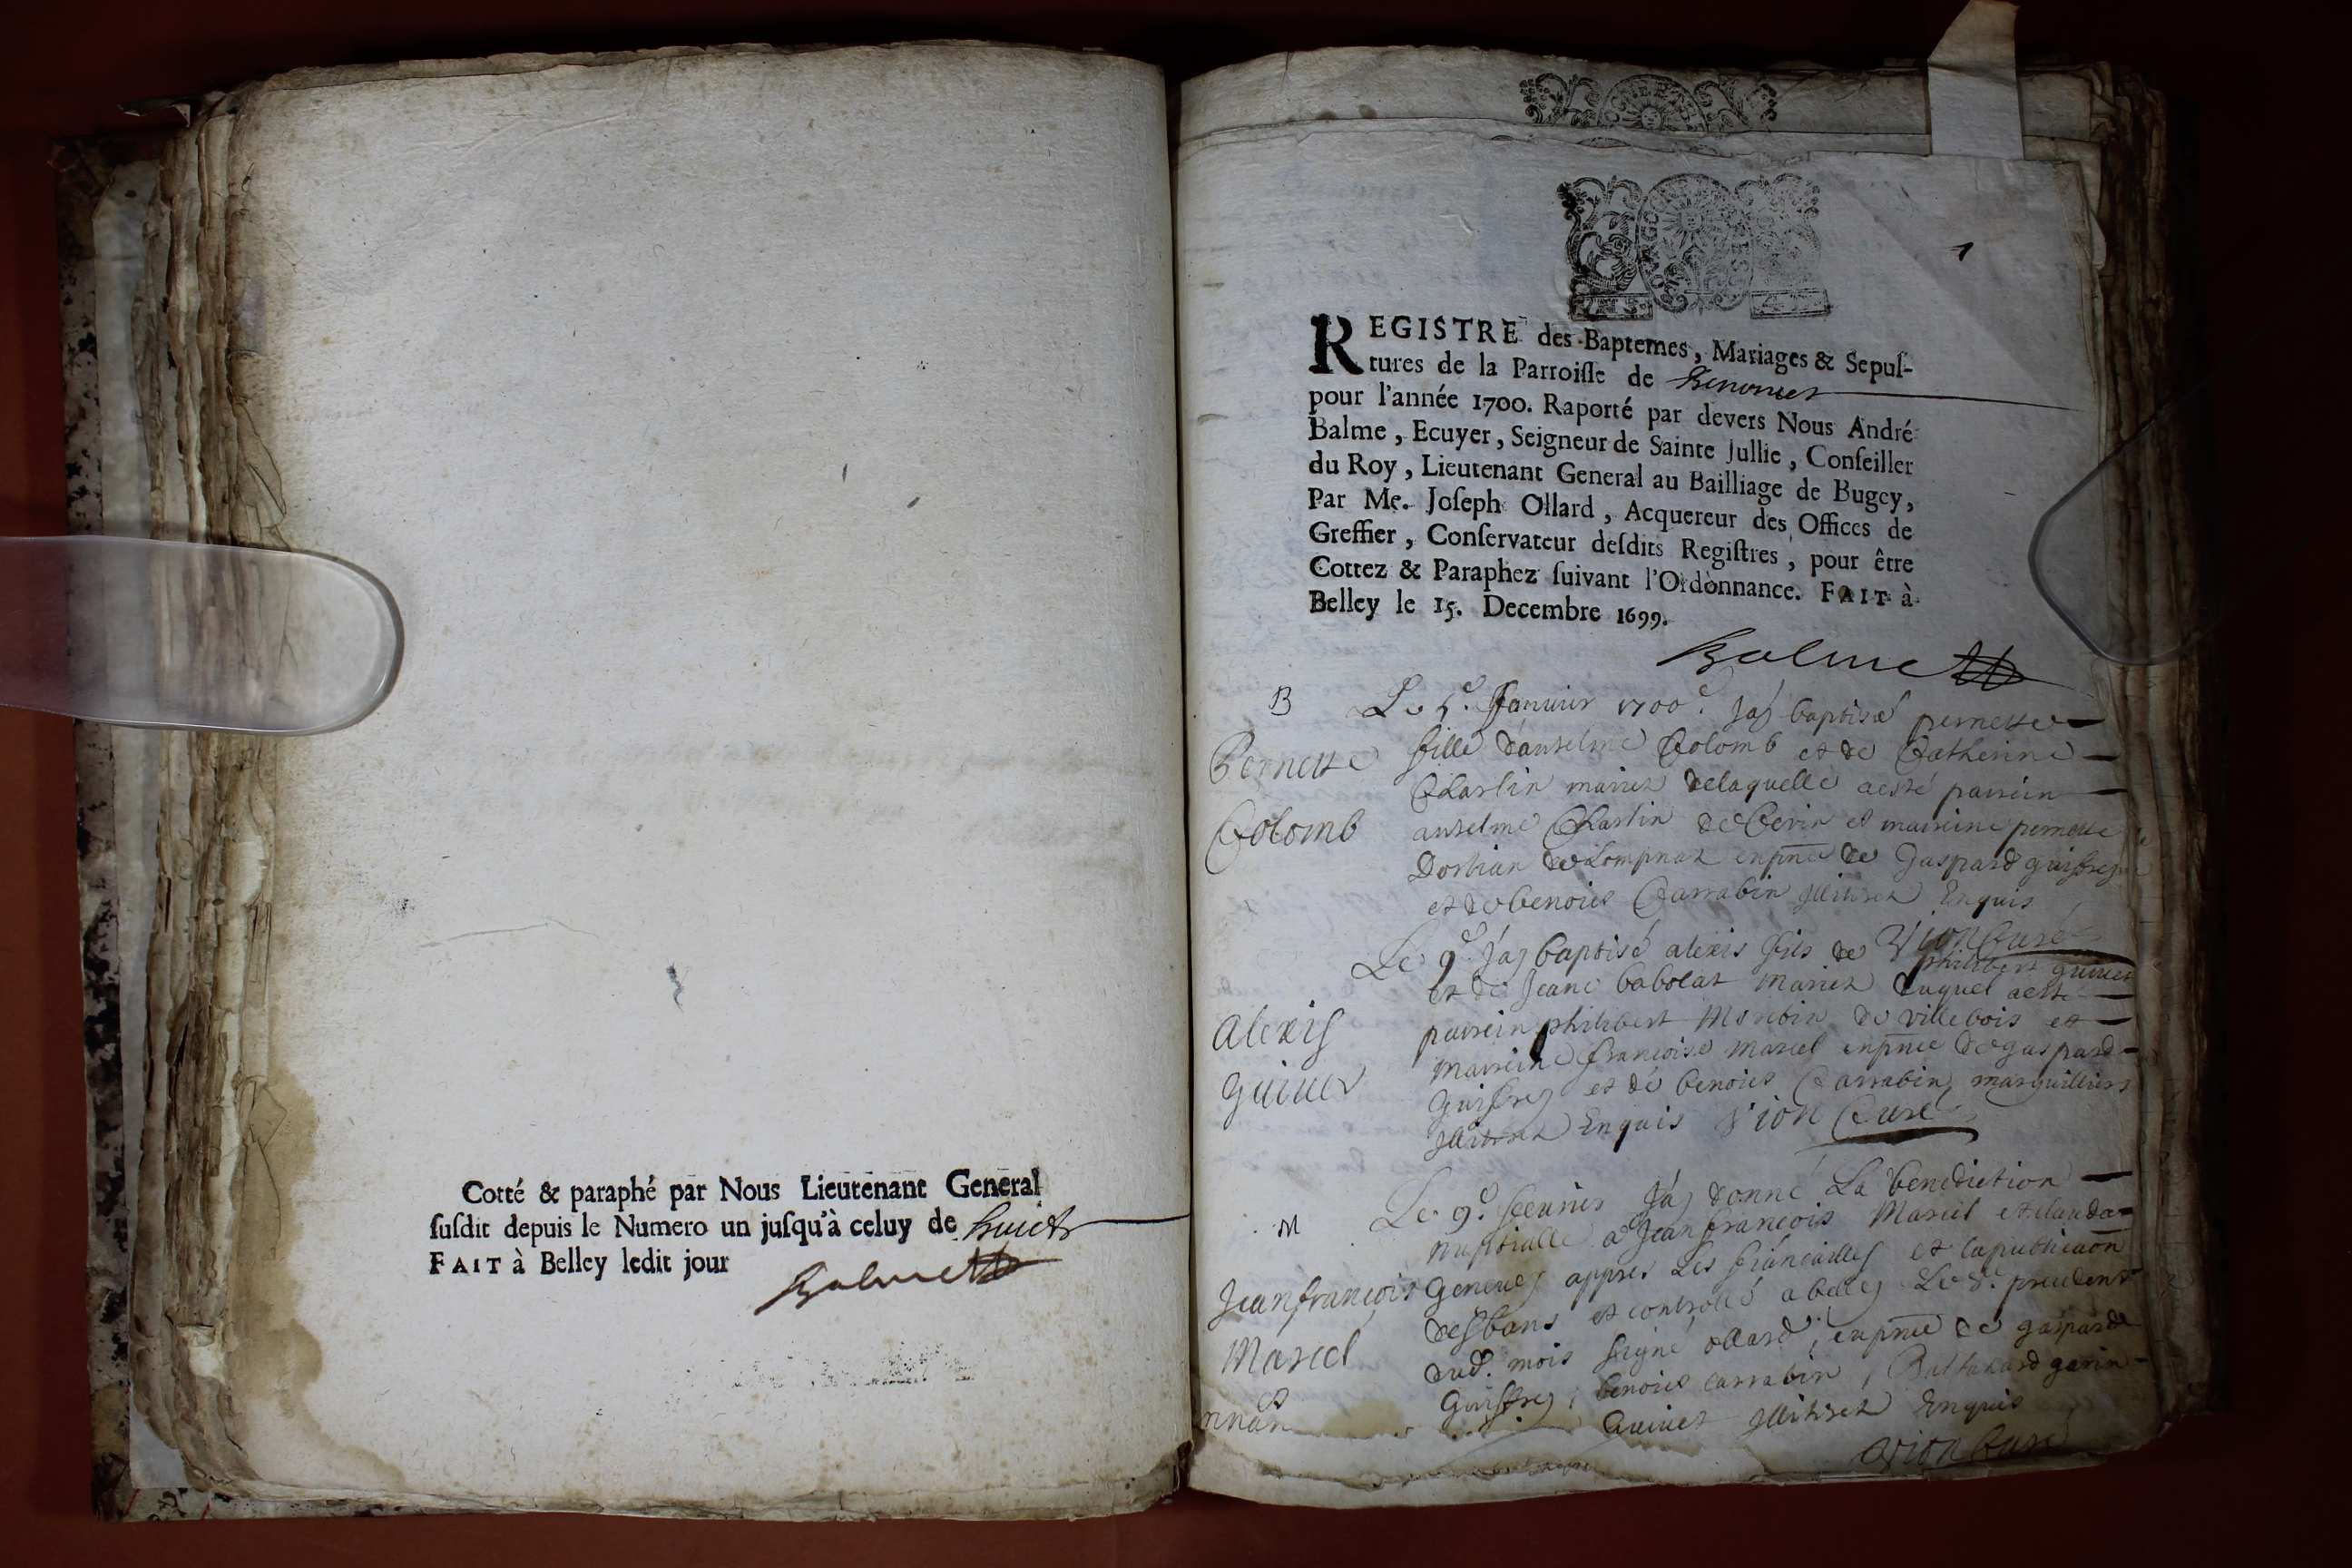 Cotté & paraphé par Nous Lieutenant General
susdit depuis le Numero un jusqu'à celuy de huict
FAIT à Belley ledit jour
Balme
1
REGISTRE des Baptemes, Mariages & Sepul-
tures de la Parroisse de
pour l'année 1700. Raporté par devers Nous André
Balme, Ecuyer, Seigneur de Sainte Jullie, Conseiller
du Roy, Lieutenant General au Bailliage de Bugey,
Par Me. Joseph Ollard, Acquereur des Offices de
Greffier, Conservateur desdits Registres, pour être
Cottez & Paraphez suivant l'Ordonnance. FAIT à
Belley le 15. Decembre 1699.
Balme
B
Pernette
Colomb
Le 5e Janvier 1700e Jay baptisé pernette
fille danselme Colomb et de Catherine
Charlin mariez delaquelle aesté parrein
anselme Charlin de et marreine pernette
de Lompnaz enpnce de Gaspard guiffrey
et de benoict Carrabin illitirez Enquis
Vion Curé
Alexis
guinet
Le 9e Jay baptisé alexis fils de philibert guinet
et de Jeane babolat Mariez duquel aesté
parrein philibert de villebois et
marreine françoise marcel enpnce de gaspard
Guiffrey et de benoict Carrabin marguilliers
illitirez Enquis Vion Curé
M
Jeanfrançois
Marcel
et
Le 9e feuvrier Jay donné La benediction
nuptialle a Jean françois Marcel et clauda
appres Les fiancailles et lapublicaon
desbans et controllé a belley Le 8e precedent
dud. mois signé ollard, enpnce de gaspard
Guiffrey, benoict carrabin, garin
Guinet illitirez Enquis
Vion Curé